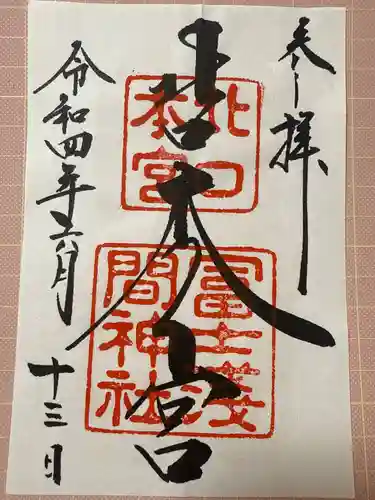 奉拝
大宮
北口
本宮
冨士淺
間神社
令和四年六月
十三日